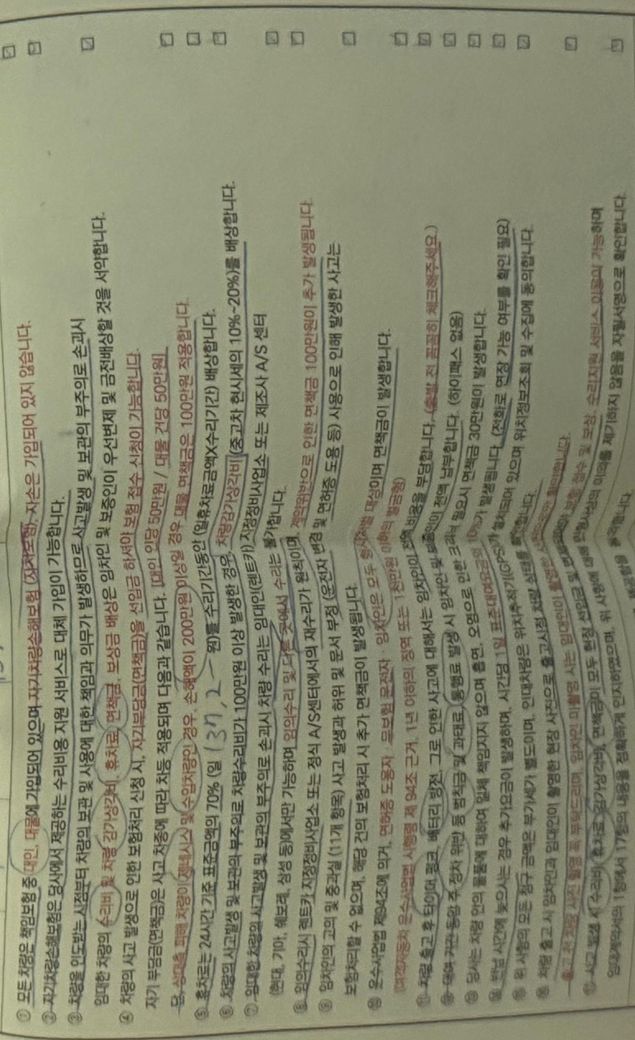 ① 모든 차량은 책임보험 중 대인, 대물에 가입되어 있으며 자기차량손해보험 (자차보험), 자손은 가입되어 있지 않습니다.
② 자기차량손해보험은 당사에서 제공하는 수리비용 지원 서비스로 대체 가입이 가능합니다.
③ 차량을 인도받는 시점부터 차량의 보관 및 사용에 대한 책임과 의무가 발생하므로 사고발생 및 보관의 부주의로 손괴시
임대한 차량의 수리비 및 차량 감가상각비, 휴차료, 면책금, 보상금 배상은 임차인 및 보증인이 우선변제 및 금전배상할 것을 서약합니다.
④ 차량의 사고 발생으로 인한 보험처리 신청 시, 자기부담금(면책금)을 선입금 하셔야 보험 접수 신청이 가능합니다.
자기 부담금(면책금)은 사고 차종에 따라 차등 적용되며 다음과 같습니다. [대인 인당 50만원 / 대물 건당 50만원]
단, 상대측 피해 차량이 제네시스 및 수입차량인 경우, 손해액이 200만원 이상일 경우 대물 면책금은 100만원 적용합니다.
⑤ 휴차료는 24시간 기준 표준금액의 70% (일 137,2 원)를 수리기간동안 (일휴차료금액X수리기간) 배상합니다.
⑥ 차량의 사고발생 및 보관의 부주의로 차량수리비가 100만원 이상 발생한 경우, 차량감가상각비 (중고차 현시세의 10%~20%)를 배상합니다.
⑦ 임대한 차량의 사고발생 및 보관의 부주의로 손괴시 차량 수리는 임대인(렌트카) 지정정비사업소 또는 제조사 A/S 센터
(현대, 기아, 쉐보레, 삼성 등)에서만 가능하며 임의수리 및 다른 곳에서 수리는 불가합니다.
⑧ 임의수리시 렌트카 지정정비사업소 또는 정식 A/S센터에서의 재수리가 원칙이며, 계약위반으로 인한 면책금 100만원이 추가 발생됩니다.
⑨ 임차인의 고의 및 중과실 (11개 항목) 사고 발생과 허위 및 문서 부정 (운전자 변경 및 면허증 도용 등) 사용으로 인해 발생한 사고는
보험처리할 수 없으며, 해당 건의 보험처리 시 추가 면책금이 발생됩니다.
⑩ 운수사업법 제94조에 의거, 면허증 도용자, 무보험 운전자, 임차인은 모두 형사처벌 대상이며 면책금이 발생합니다.
(여객자동차 운수사업법 시행령 제 94조 근거, 1년 이하의 징역 또는 1천만원 이하의 벌금형)
⑪ 차량 출고 후 타이어 펑크, 배터리 방전, 그로 인한 사고에 대해서는 임차인이 전액 비용을 부담합니다. (출발 전 꼼꼼히 체크해주세요.)
⑫ 대여 기간동안 주·정차 위반 등 범칙금 및 과태료, 통행료 발생 시 임차인 및 전액 납부합니다. (하이패스 없음)
⑬ 당사는 차량 안의 물품에 대하여 일체 책임지지 않으며 흡연, 오염으로 인한 크리닝 필요시 면책금 30만원이 발생합니다.
⑭ 반납 시간에 늦으시는 경우 추가요금이 발생하며, 시간당 1일 표준대여요금의 발생됩니다. (전화로 연장 가능 여부를 확인 필요)
⑮ 위 사항의 모든 청구 금액은 부가세가 별도이며, 임대차량은 위치추적기(GPS)가 설치되어 있으며 위치정보조회 및 수집에 동의합니다.
⑯ 차량 출고 시 임차인과 임대인이 촬영한 현장 사진으로 출고시점 차량 상태를
출고 전 차량 사진 촬영 꼭 부탁드리며, 임차인 미촬영 시는 임대인이 촬영한
⑰ 사고 발생 시 수리비, 휴차료, 감가상각비, 면책금이 모두 현장 선입금 및 보험 접수 및 보상, 수리지원 서비스 이용이 가능하며
임대계약서의 1항에서 17항의 내용을 정확하게 인지하였으며, 위 사항에 대해 이의를 제기하지 않음을 자필서명으로 확인합니다.